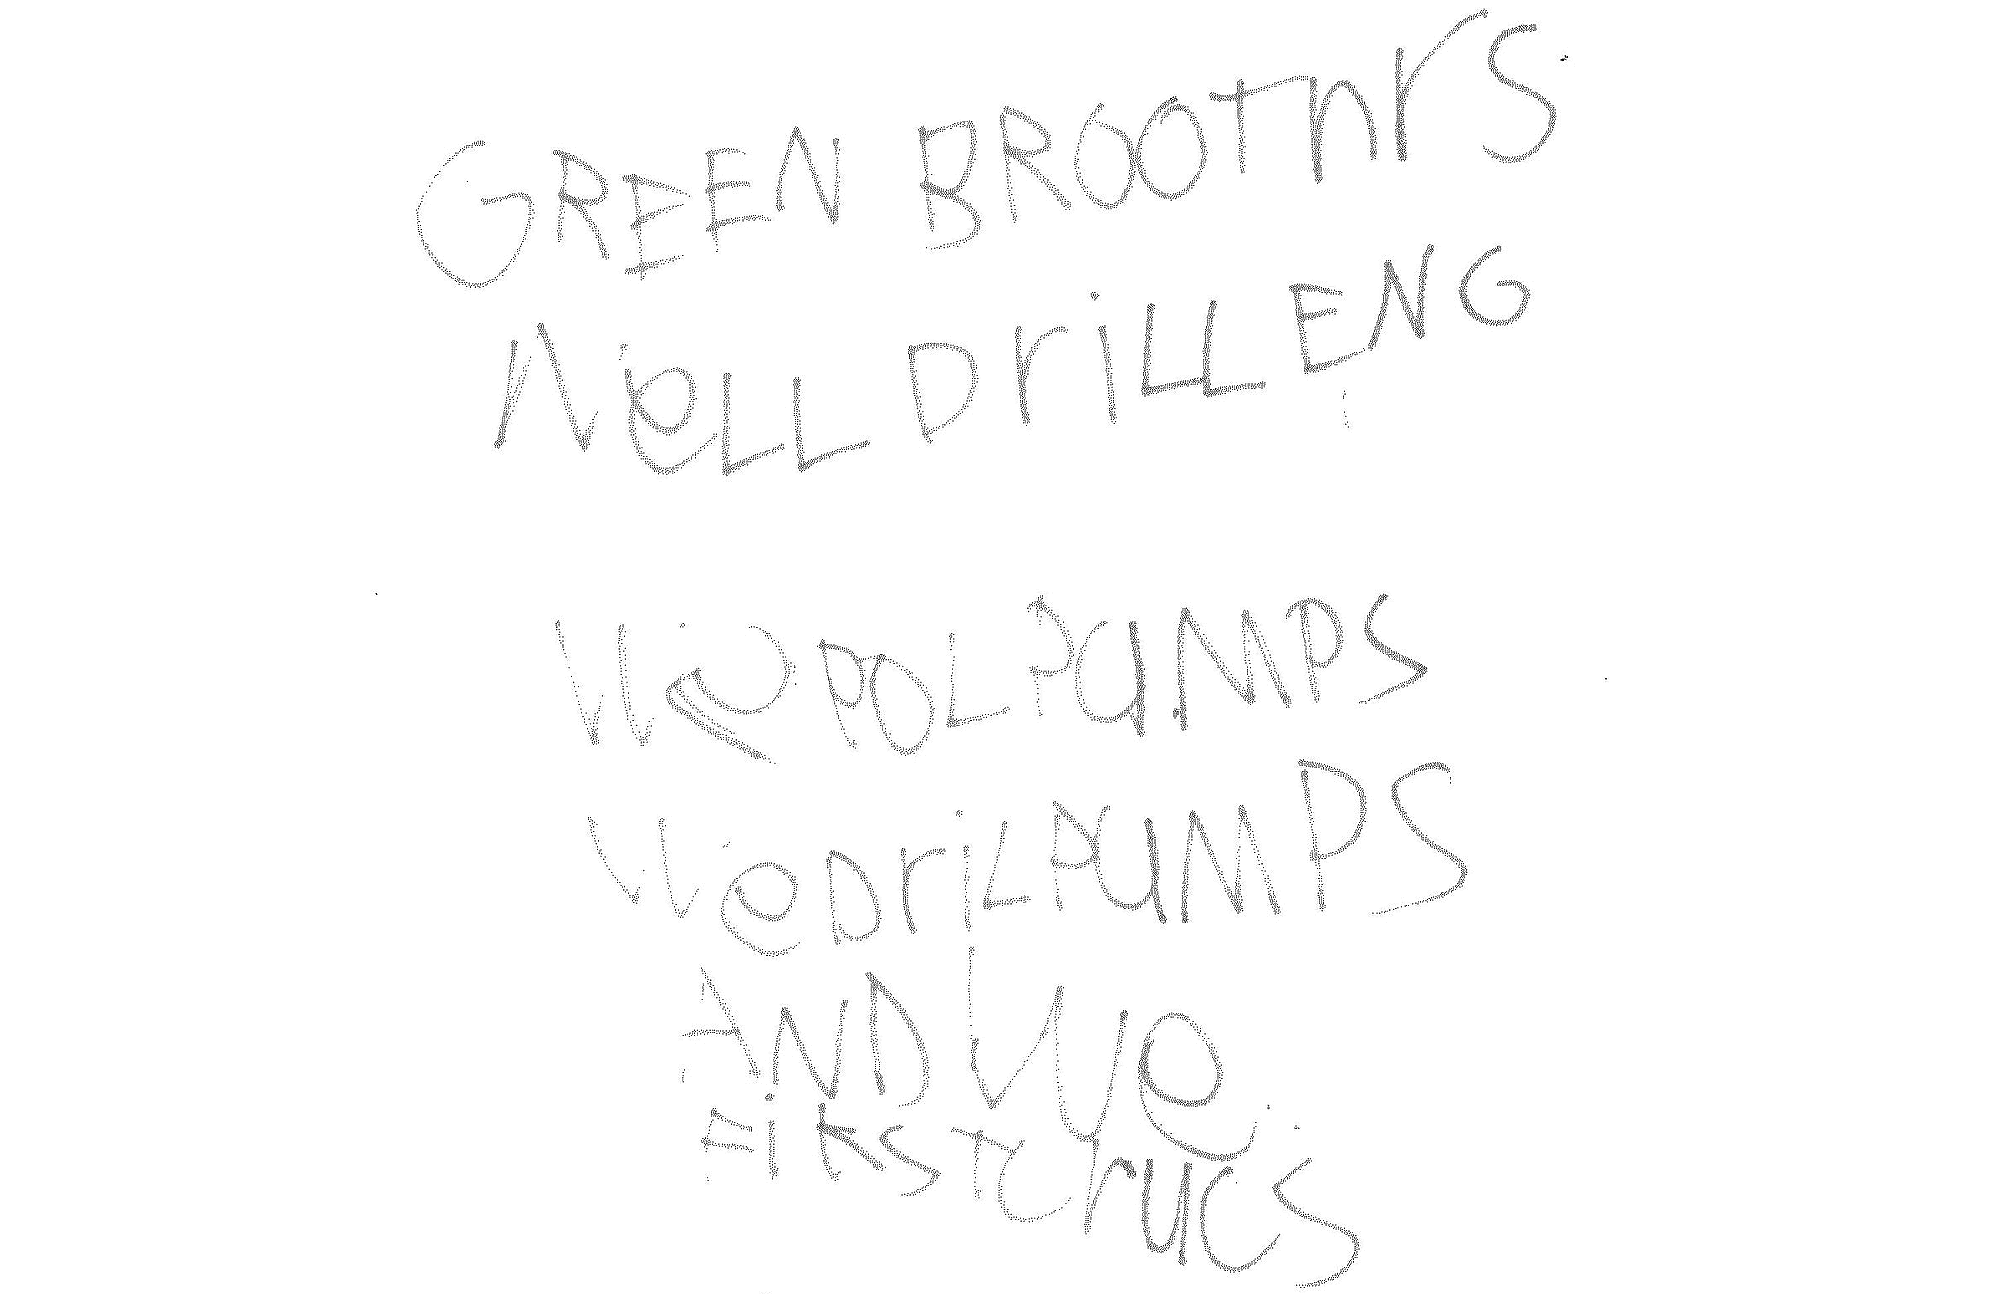 GREEN BROOTHrS
WeLL DriLLENG
We POL PUMPS
We DriL PUMPS
AND We
FiKS TChUCS